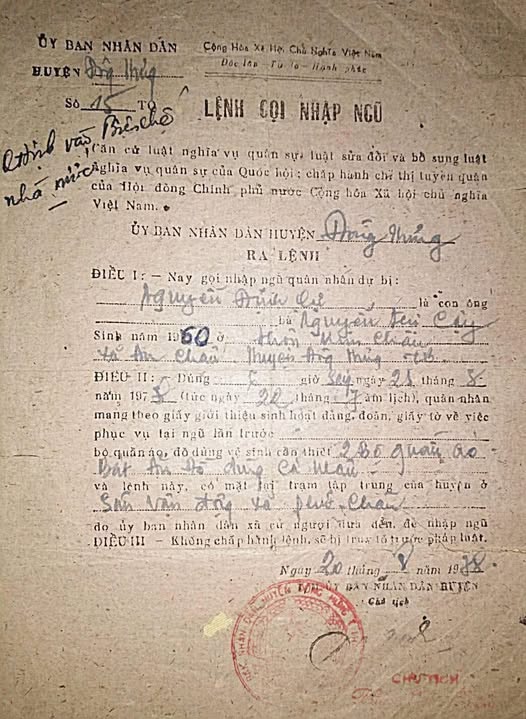 ỦY BAN NHÂN DÂN
HUYỆN Đông Hưng
Số 15 TQ
Cộng Hòa Xã Hội Chủ Nghĩa Việt Nam
Độc lập - Tự do - Hạnh phúc
LỆNH GỌI NHẬP NGŨ
nhà nước
Căn cứ luật nghĩa vụ quân sự, luật sửa đổi và bổ sung luật
Nghĩa vụ quân sự của Quốc hội; chấp hành chỉ thị tuyển quân
của Hội đồng Chính phủ nước Cộng hòa Xã hội chủ nghĩa
Việt Nam.
ỦY BAN NHÂN DÂN HUYỆN Đông Hưng
RA LỆNH
ĐIỀU I: - Nay gọi nhập ngũ quân nhân dự bị:
Nguyễn Đình là con ông
bà Nguyễn
Sinh năm 1960 ở Thôn Châu
Xã An Châu Huyện Đông Hưng
ĐIỀU II: Đúng giờ ngày 25 tháng 8
năm 197 (tức ngày 22 tháng 7 âm lịch), quân nhân
mang theo giấy giới thiệu sinh hoạt đảng, đoàn, giấy tờ về việc
phục vụ tại ngũ lần trước
bộ quần áo, đồ dùng vệ sinh cần thiết 2 Bộ quần áo
Bát ăn Đồ dùng Cá nhân
và lệnh này, có mặt tại trạm tập trung của huyện ở
Sân vận động xã Châu
do ủy ban nhân dân xã cử người đưa đến, để nhập ngũ
ĐIỀU III - Không chấp hành lệnh, sẽ bị truy tố trước pháp luật.
Ngày 20 tháng 8 năm 1978
ỦY BAN NHÂN DÂN HUYỆN
Chủ tịch
CHỦ TỊCH